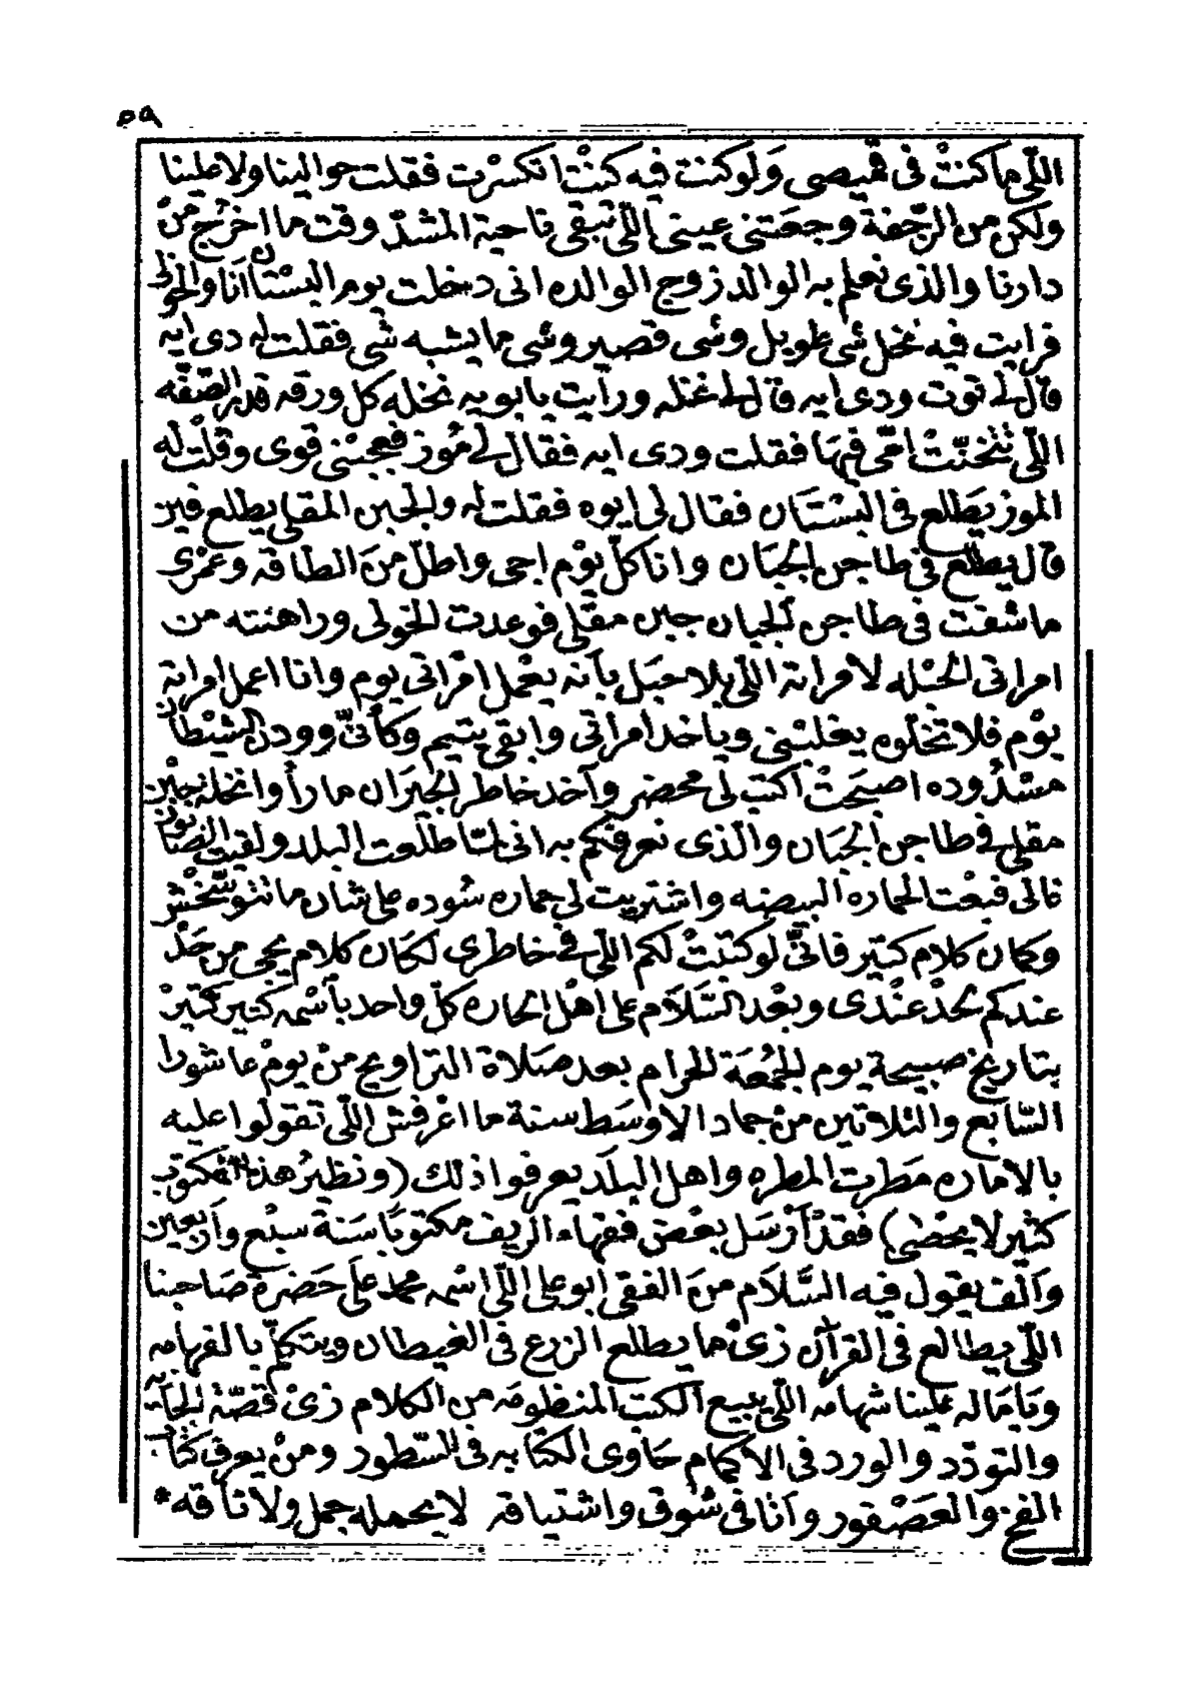 ٥٩
اللّى ما كنتْ فى قميصى وَلو كنت فيه كنتْ اتكسرْت فقلت حوالينا ولا علينا
ولكن من الرّجفة وجعَتنى عينى اللّى تبقى ناحية المشدّ وقت ما اخرُج منْ
دارنا والذى نعلم به الوالد زوج الوالده انى دخلت يوم البسْتان أنَا والخولى
فرايت فيه نخل شى طويل وشى قصير وشى ما يشبه شى فقلت له دى ايه
قال لى توت ودى ايه قال لى نخله ورأيت يابويه نخله كل ورقه قدر الصّفّه
اللّى امّى فيها فقلت ودى ايه فقال لى مُوز فعجبْنى قوى وقلتْ له
الموز يَطلع فى البسْتَان فقال لى ايوه فقلت له والجبن المقلى يطلع فين
قال يطلع فى طاجن الجبَان وانا كلّ يوْم اجى واطلّ منَ الطاقه وعمْرى
ما شفت فى طاجن الجبان جبن مقلى فوعدت الخولى وراهنته من
امراتى الحبْله لامراته اللّى بلا حبَل بأنه يعْمل امْراتى يوم وانا اعمل امراته
يوْم فلا تخلّوه يغلبْنى وياخد امراتى وابقى يتيم وكأنّى وودن الشيْطان
مسْدُوده اصبَحتْ اكتب لى محضر وآخد خاطر الجيرَان ما رأوا نخلة جبْن
مقلى فى طاجن الجبَان والّذى نعرفكم به انى لمّا طلَعت البلد ولقيت الصّابون
غالى فبعْت الحماره البيضه واشتريت لى حماره سُوده على شان ما تتوسّخْش
وكان كلام كتير فانّى لو كتبْتْ لكم اللّى فى خاطرى لكَان كلام يجى من حَدْ
عندكم لحَدْ عنْدى وبعْد السَّلاَم على اهْل الحاره كلّ واحد بأسْمه كتير كتيرْ
بتاريخ صبيحة يوم الجمُعَة الحرام بعد صَلاة التراويح منْ يومْ عاشورا
السّابع والثلاتين منْ جماد الاوسَط سنة ما اعْرفش اللّى تقولوا عليه
بالاماره مَطرت المطره واهل البلَد يعرفوا ذلك (ونظيرُ هذا المكتوب
كثير لا يحْصَى) فقدْ أرْسَل بعْض فقهاء الريف مكتوبًا سَنة سبْع وأربعين
وَألف يقول فيه السَّلاَم منَ الفقى ابو على اللّى اسْمه محمد علَى حَضرة صَاحبنا
اللّى يطالع فى القرآن زىْ ما يطلع الزرع فى الغيطان ويتكلّم بالفهامه
وَياما له علينا شهامه اللّى يبيع الكتب المنظومَه من الكلام زىْ قصّة الجآريه
والتودّد والورد فى الاكمام حَاوى الكتابه فى السّطور ومنْ يعرف كتاب
الفخ والعَصْفور وَانا فى شوق واشتياقه لا يحمله جمل ولا ناقه *